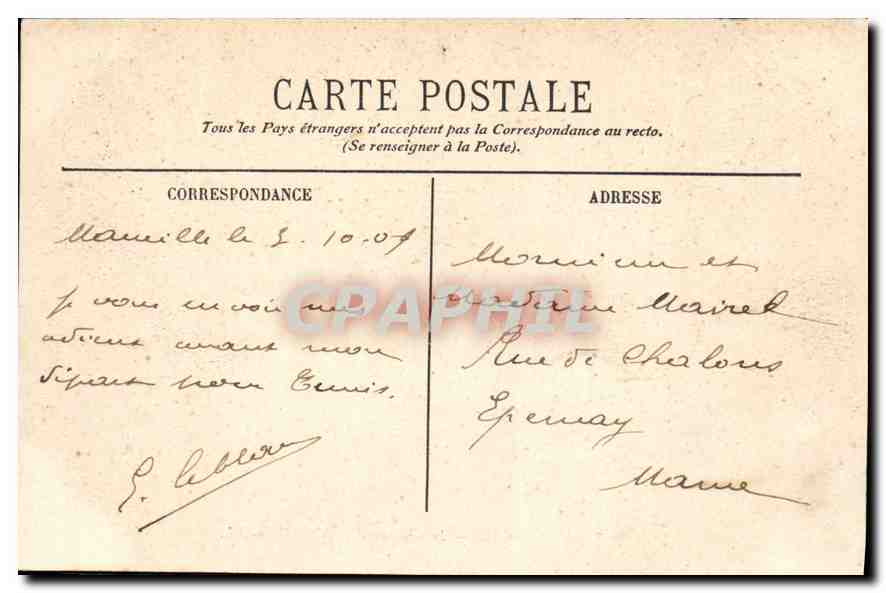 CARTE POSTALE
Tous les Pays étrangers n'acceptent pas la Correspondance au recto.
(Se renseigner à la Poste).
CORRESPONDANCE
Marseille le 5. 10-07
je vous envoie mes
adieux avant mon
départ pour Tunis.
G. Leblan
ADRESSE
Monsieur et
Madame Mairel
Rue de Chalons
Epernay
Marne
CPAPHIL